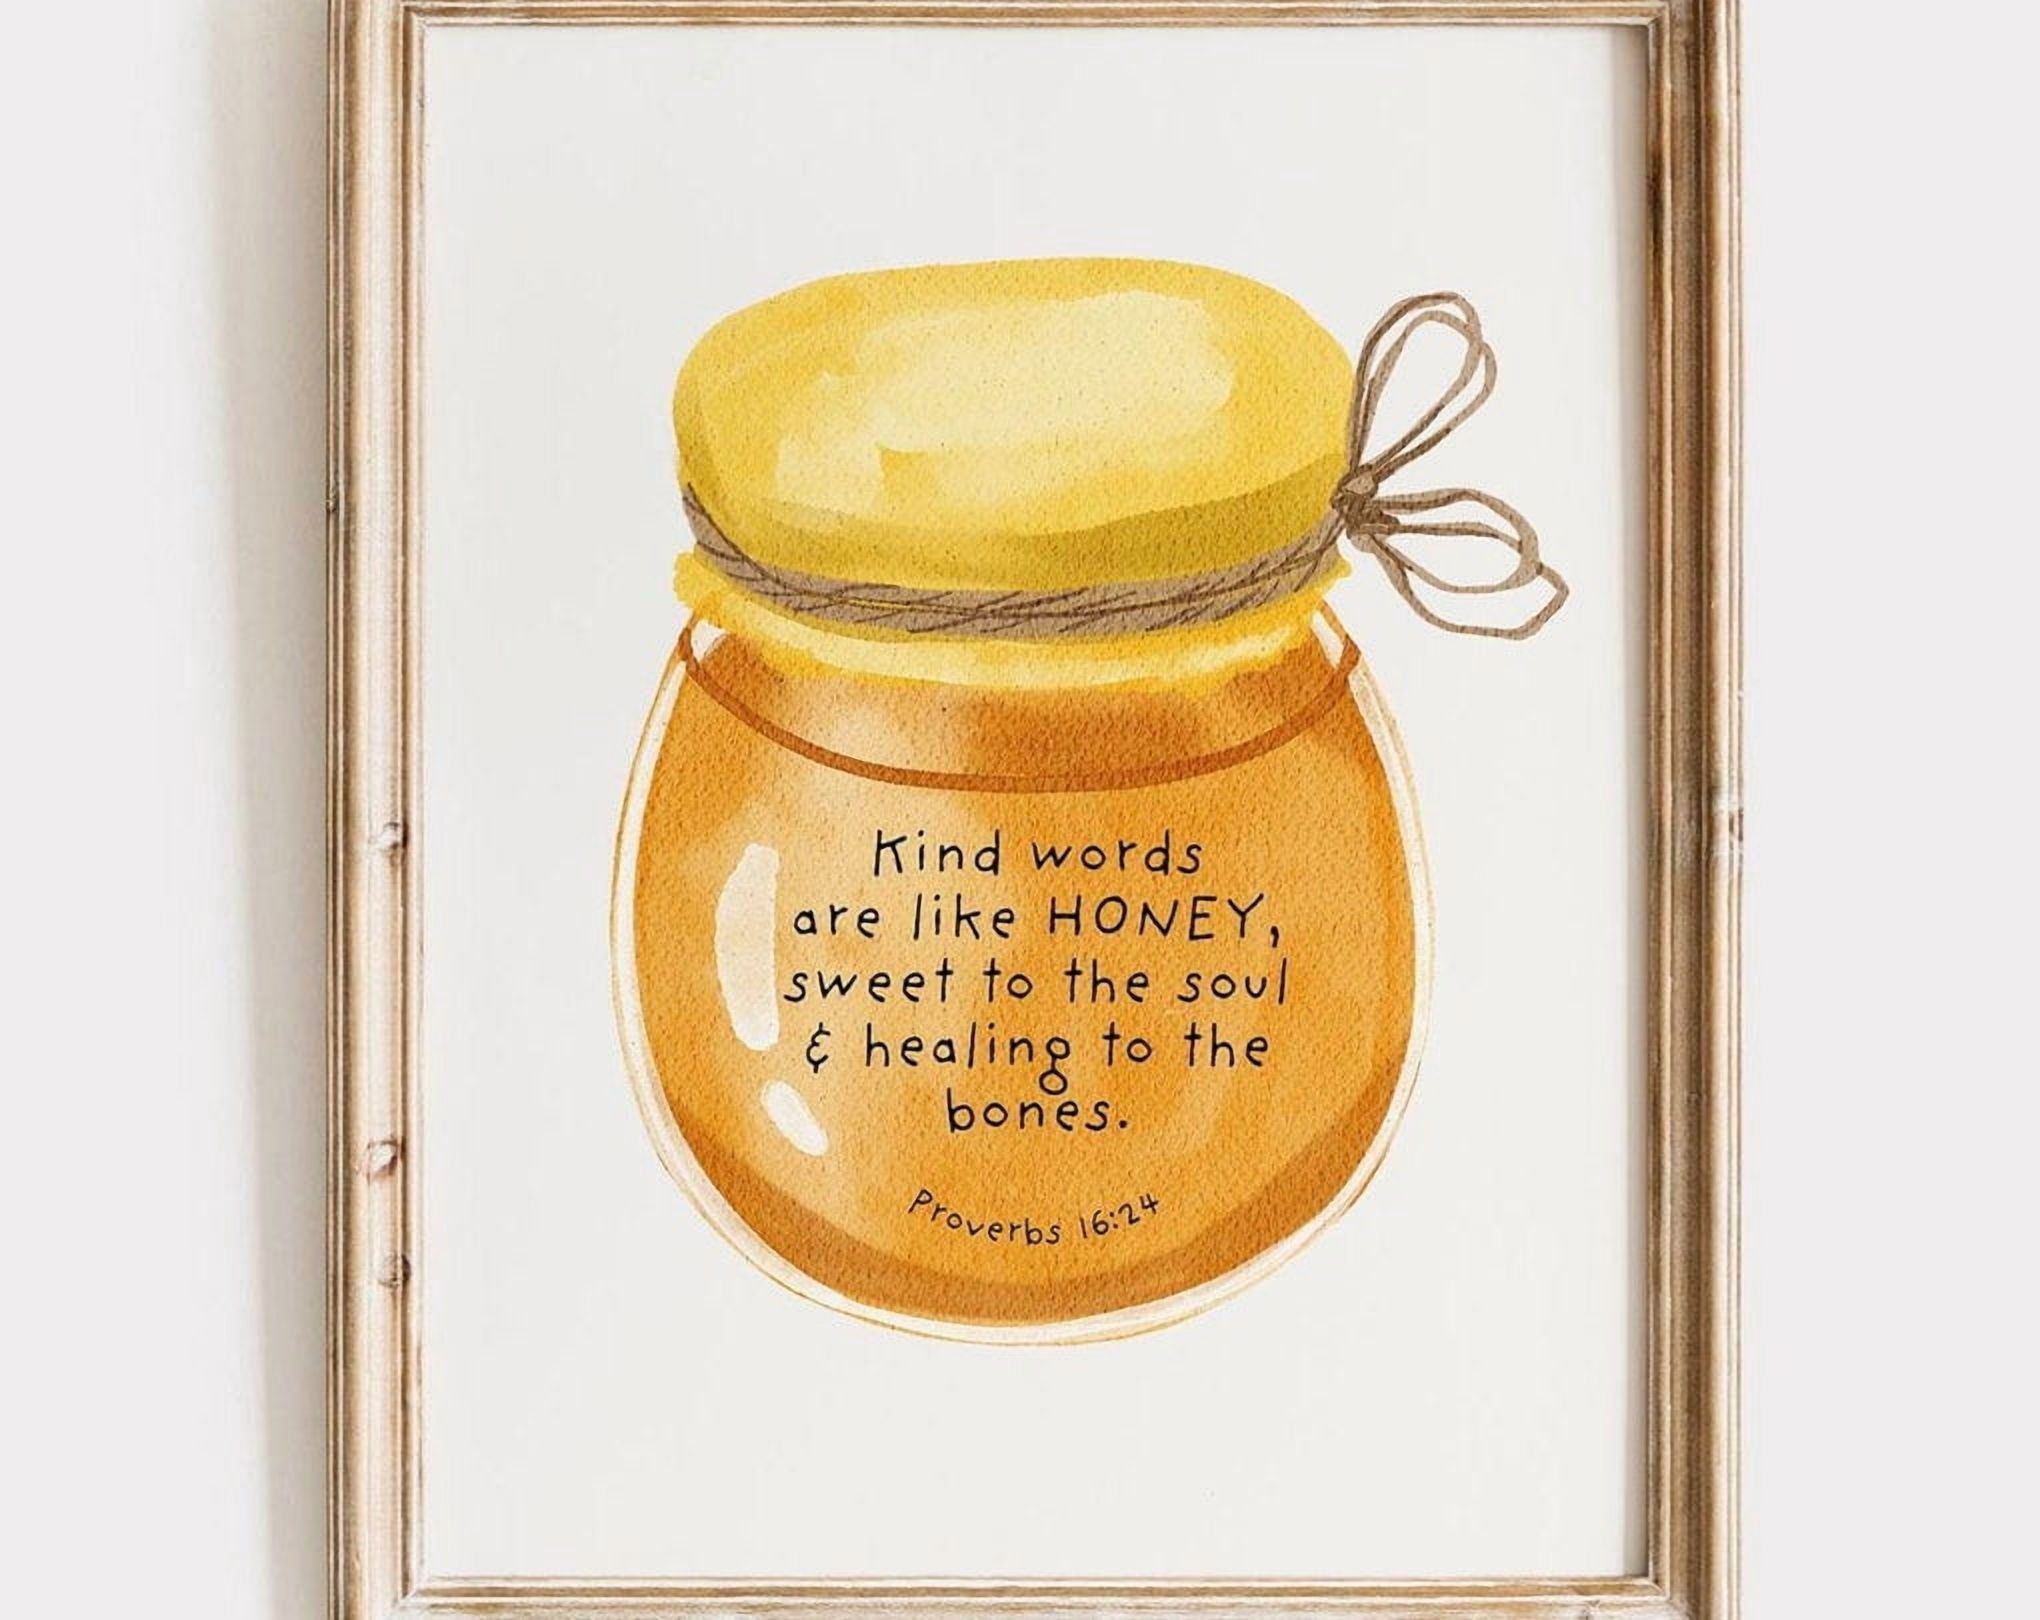 Kind words
are like HONEY,
sweet to the soul
& healing to the
bones.
Proverbs 16:24